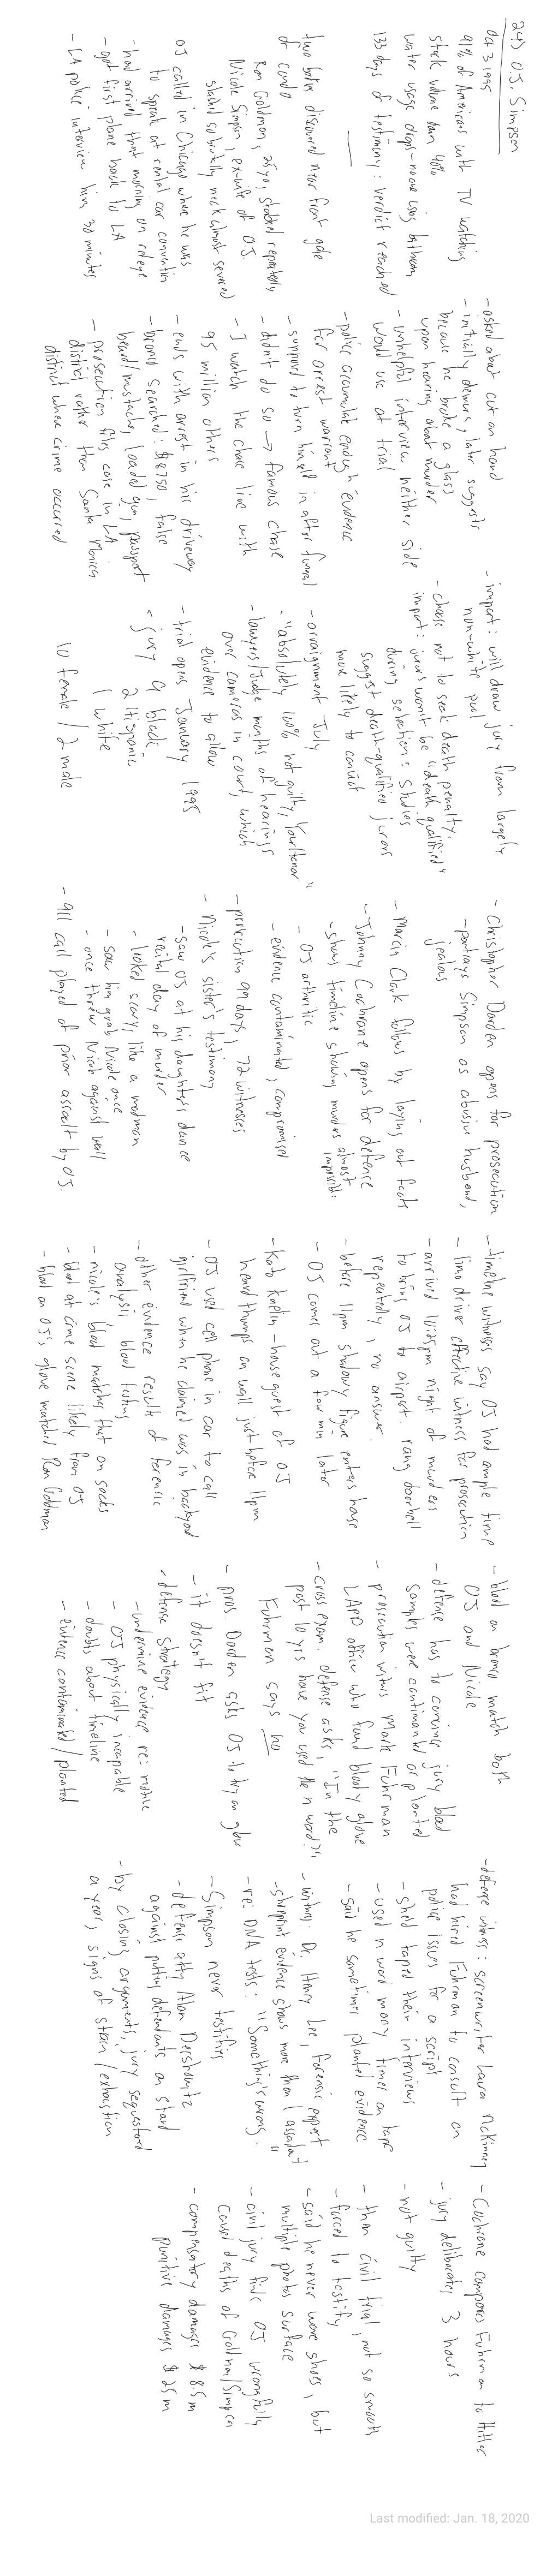 24) O.J. Simpson
Oct 3 1995
91% of Americans with TV watching
stock volume down 40%
water usage drops-no one using bathroom
133 days of testimony: verdict reached
two bodies discovered near front gate
of condo
Ron Goldman, 25yo, stabbed repeatedly
Nicole Simpson, ex-wife of O.J.
slashed so brutally neck almost severed
OJ called in Chicago where he was
to speak at rental car convention
- had arrived that morning on redeye
- got first plane back to LA
- LA police interview him 30 minutes
- asked about cut on hand
- initially demurs, later suggests
because he broke a glass
upon hearing about murder
- unhelpful interview neither side
would use at trial
- police accumulate enough evidence
for arrest warrant
- supposed to turn himself in after funeral
- didn't do so → famous chase
- I watch the chase live with
95 million others
- ends with arrest in his driveway
- bronco searched: $8750, false
beard/mustache, loaded gun, passport
- prosecution files case in LA
district rather than Santa Monica
district where crime occurred
- import: will draw jury from largely
non-white pool
- choose not to seek death penalty.
import: jurors won't be "death qualified"
during selection: studies
suggest death-qualified jurors
more likely to convict
- arraignment July
- "absolutely 100% not guilty, Your Honor"
- lawyers/Judge months of hearings
over cameras in court, which
evidence to allow
- trial opens January 1995
- jury 9 black
2 Hispanic
1 white
10 female / 2 male
- Christopher Dardon opens for prosecution
- portrays Simpson as abusive husband,
jealous
- Marcia Clark follows by laying out facts
- Johnny Cochrane opens for defense
- shows timeline showing murders almost
impossible
- OJ arthritic
- evidence contaminated, compromised
- prosecution 99 days, 72 witnesses
- Nicole's sister's testimony
- saw OJ at his daughter's dance
recital day of murder
- looked scary, like a madman
- saw him grab Nicole once
- once threw Nicole against wall
- 911 call played of prior assault by O.J.
- timeline witnesses say OJ had ample time
- limo driver effective witness for prosecution
- arrived 10:25pm night of murders
to bring OJ to airport. rang doorbell
repeatedly, no answer.
- before 11pm shadowy figure enters house
- OJ comes out a few min later
- Kato Kaelin - house guest of OJ
heard thumps on wall just before 11pm
- OJ used cell phone in car to call
girlfriend when he claimed was in backyard
- other evidence results of forensic
analysis, blood testing
- nicole's blood matches that on socks
- blood at crime scene likely from OJ
- blood on OJ's glove matched Ron Goldman
- blood on bronco match both
OJ and Nicole
- defense has to convince jury blood
samples were contimanted or planted
- prosecution witness Mark Fuhrman
LAPD officer who found bloody glove
- cross exam. defense asks, "In the
past 10 yrs have you used the n word?"
Fuhrman says no
- pros. Dardon asks OJ to try on glove
- it doesn't fit
- defense strategy
- undermine evidence re: motive
- OJ physically incapable
- doubts about timeline
- evidence contaminated/planted
- defense witness: screenwriter Laura McKinney
had hired Fuhrman to consult on
police issues for a script
- she'd taped their interviews
- used n word many times on tape
- said he sometimes planted evidence
- witness: Dr. Henry Lee, forensic expert
- shoeprint evidence shows more than 1 assailant
- re: DNA tests: "Something's wrong."
- Simpson never testifies
- defense atty Alan Dershowitz
against putting defendants on stand
- by closing arguments, jury sequestered
a year, signs of strain/exhaustion
- Cochrane compares Fuhrman to Hitler
- jury deliberates 3 hours
- not guilty
- then civil trial, not so smooth
- forced to testify
- said he never wore shoes, but
multiple photos surface
- civil jury finds OJ wrongfully
caused deaths of Goldman/Simpson
- compensatory damages $8.5m
punitive damages $25m
Last modified: Jan. 18, 2020